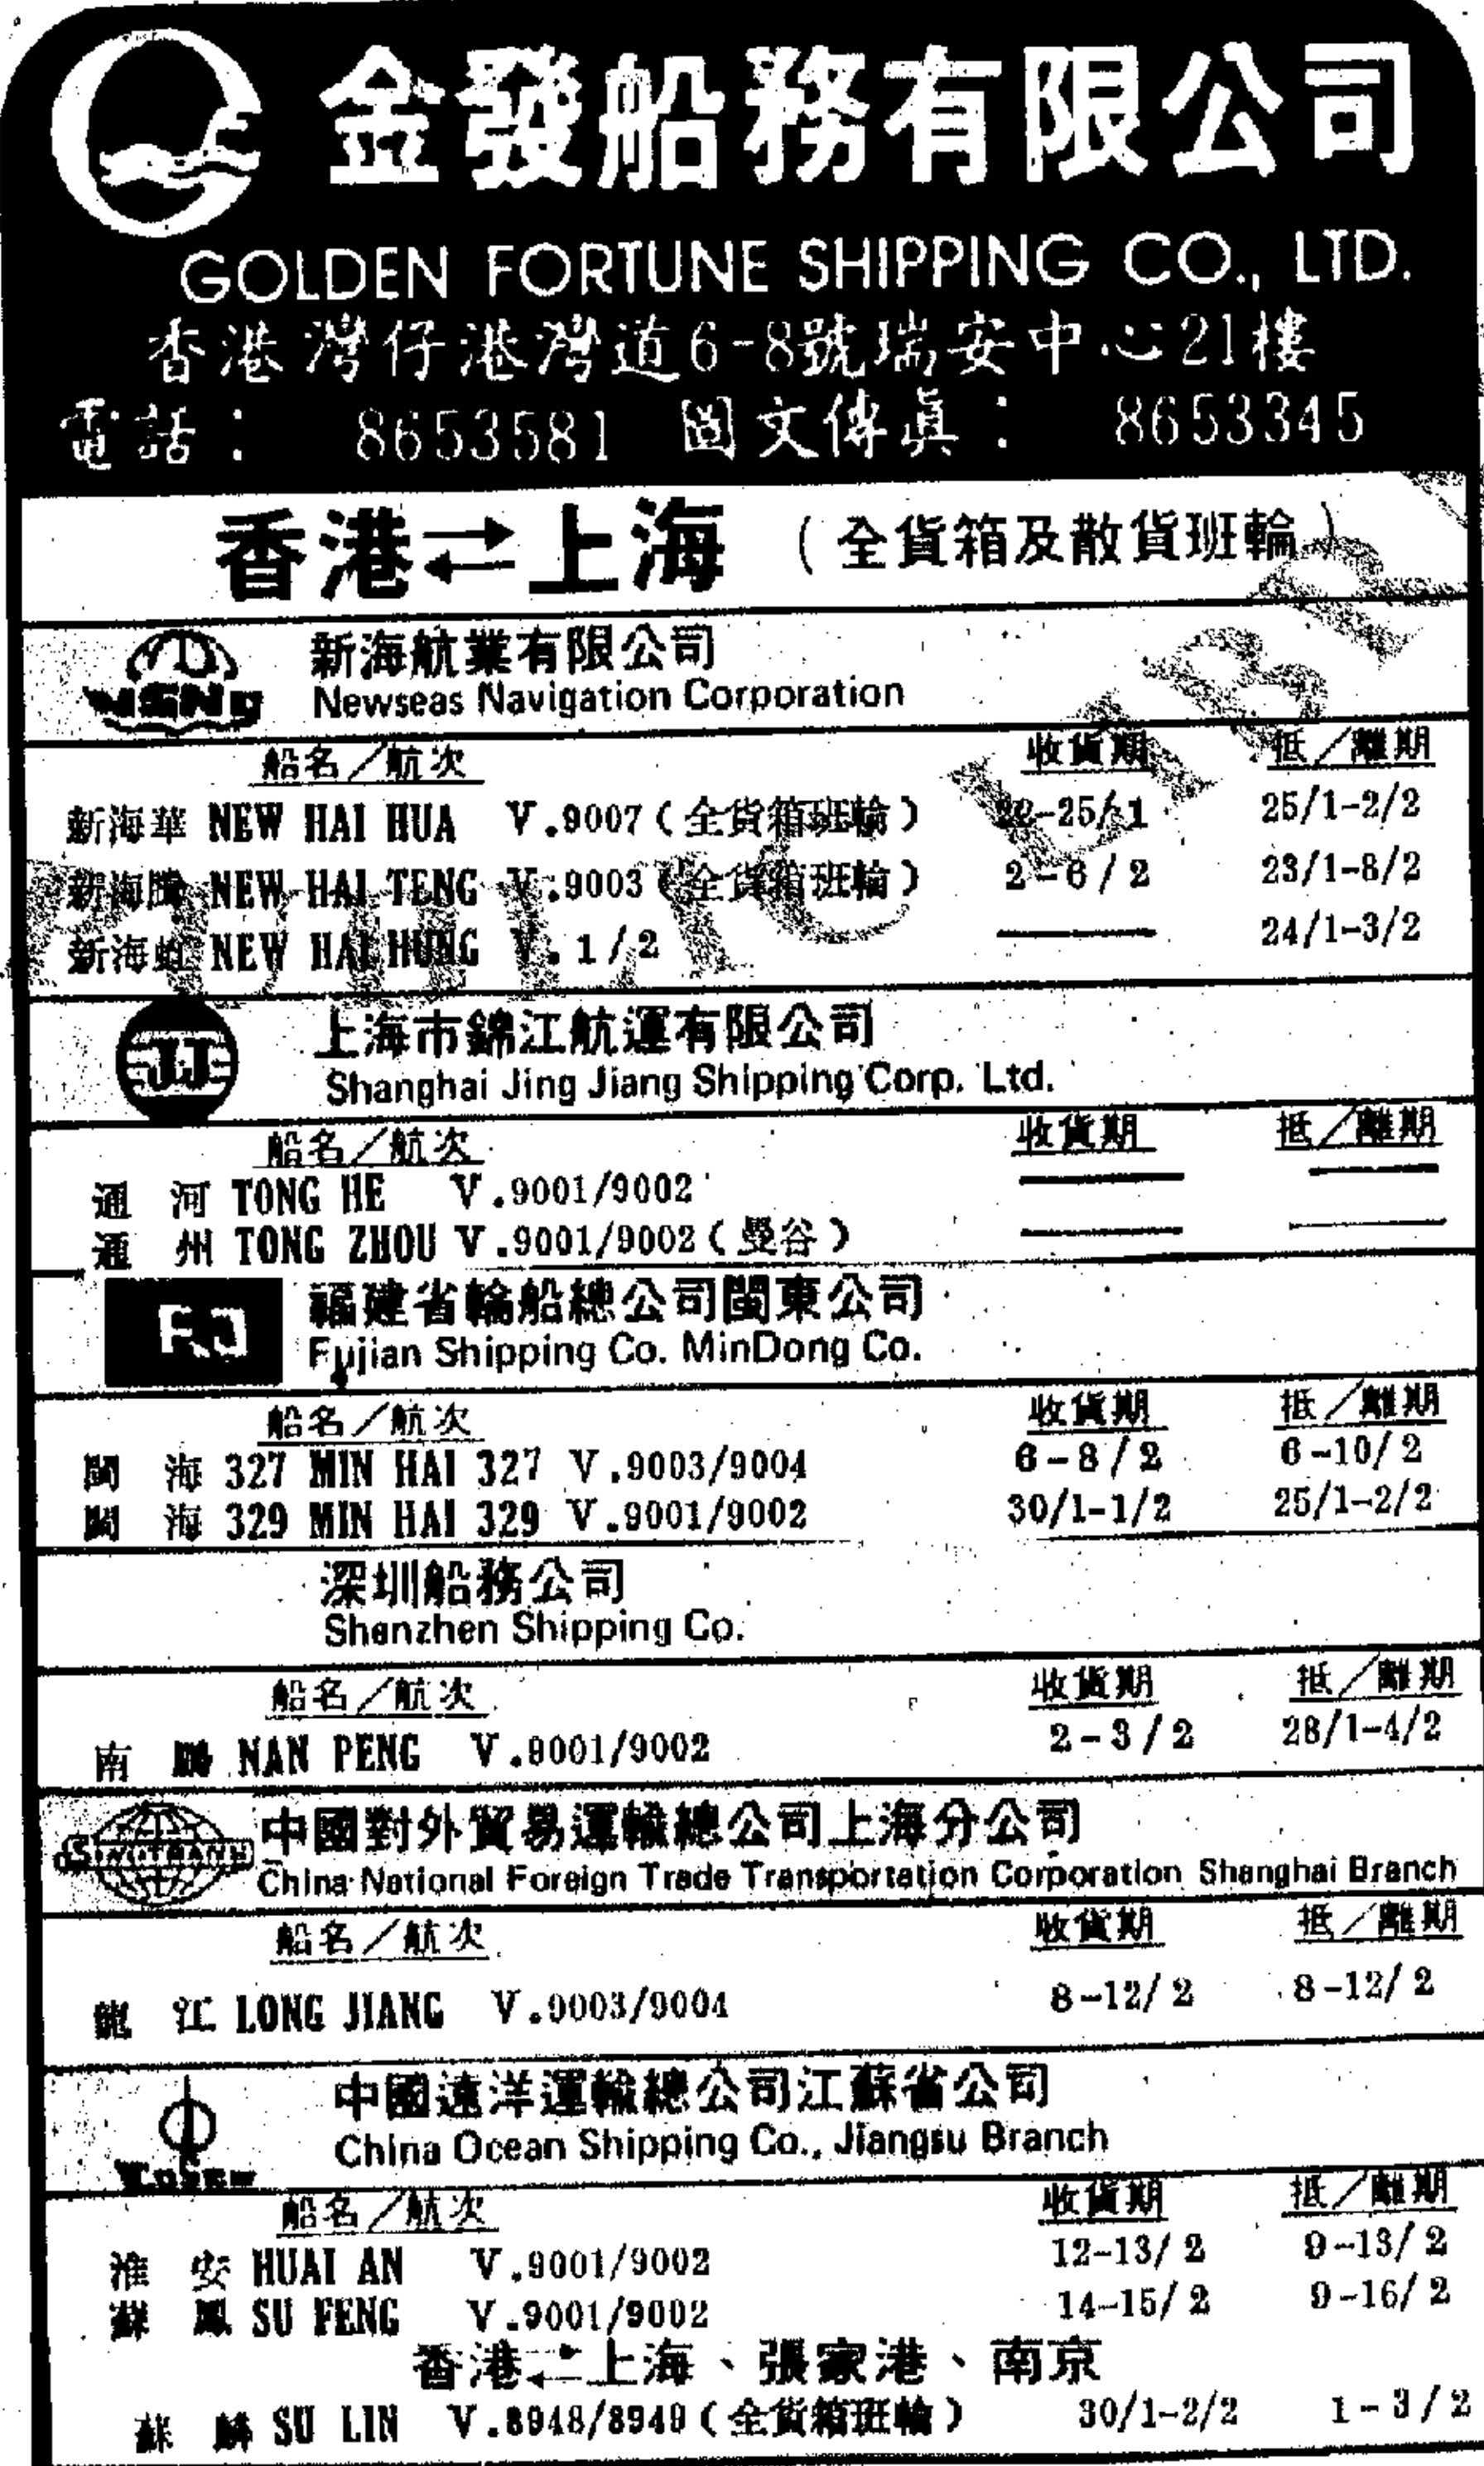 金發船務有限公司
GOLDEN FORTUNE SHIPPING CO., LTD.
香港灣仔港灣道6-8號瑞安中心21樓
電話： 8653581 圖文傳眞： 8653345
香港⇄上海（全貨箱及散貨班輪）
新海航業有限公司
Newseas Navigation Corporation
船名／航次 收貨期 抵／離期
新海華 NEW HAI HUA V.9007（全貨箱班輪） 22-25/1 25/1-2/2
新海騰 NEW HAI TENG V.9003（全貨箱班輪） 2-6/2 23/1-8/2
新海虹 NEW HAI HUNG V.1/2 —— 24/1-3/2
JJ
上海市錦江航運有限公司
Shanghai Jing Jiang Shipping Corp. Ltd.
船名／航次 收貨期 抵／離期
通 河 TONG HE V.9001/9002 —— ——
通 州 TONG ZHOU V.9001/9002（曼谷） —— ——
福建省輪船總公司閩東公司
Fujian Shipping Co. MinDong Co.
船名／航次 收貨期 抵／離期
閩 海 327 MIN HAI 327 V.9003/9004 6-8/2 6-10/2
閩 海 329 MIN HAI 329 V.9001/9002 30/1-1/2 25/1-2/2
深圳船務公司
Shenzhen Shipping Co.
船名／航次 收貨期 抵／離期
南 鵬 NAN PENG V.9001/9002 2-3/2 28/1-4/2
SINOTRANS
中國對外貿易運輸總公司上海分公司
China National Foreign Trade Transportation Corporation Shanghai Branch
船名／航次 收貨期 抵／離期
龍 江 LONG JIANG V.9003/9004 8-12/2 8-12/2
中國遠洋運輸總公司江蘇省公司
China Ocean Shipping Co., Jiangsu Branch
船名／航次 收貨期 抵／離期
淮 安 HUAI AN V.9001/9002 12-13/2 9-13/2
蘇 鳳 SU FENG V.9001/9002 14-15/2 9-16/2
香港⇄上海、張家港、南京
蘇 麟 SU LIN V.8948/8949（全貨箱班輪） 30/1-2/2 1-3/2